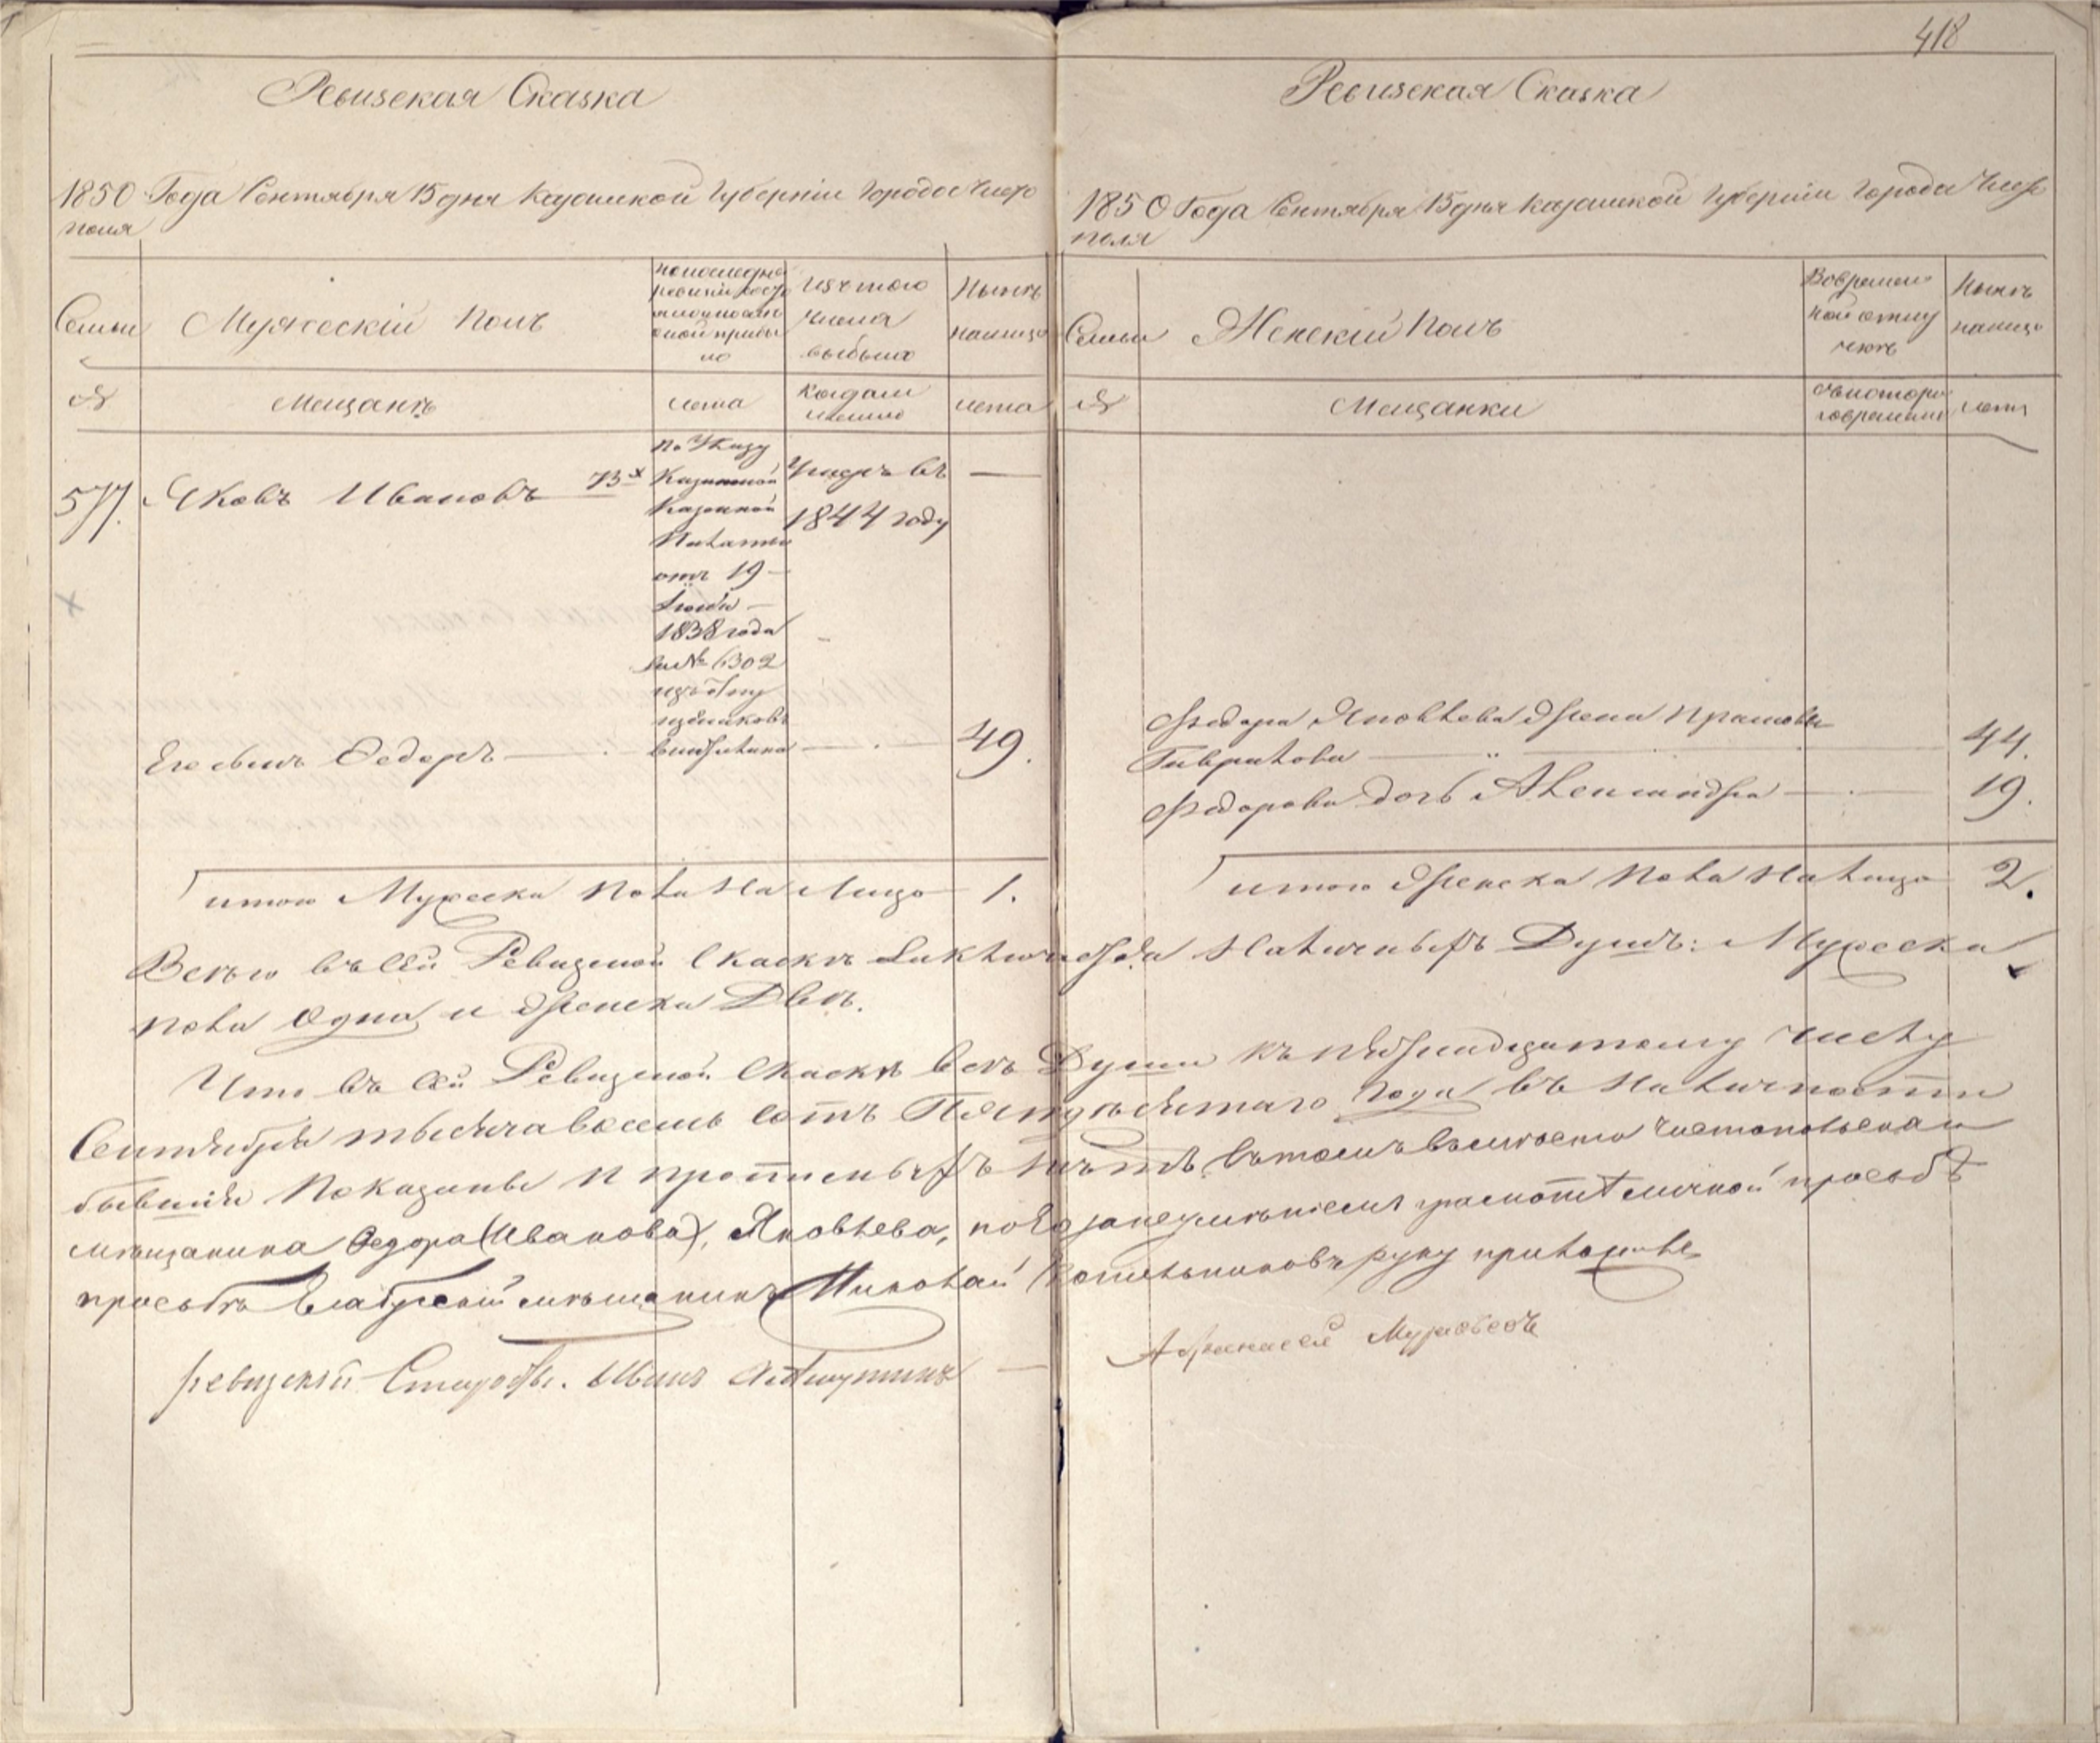 418
Ревизская Сказка
1850 Года Сентября 15 дня Казанской Губернии Города Чисто
поля
Семьи
Мужескій Полъ
по последней
ревизіи состо
яло и после
оной прибы
ло
Изъ того
числа
выбыло
Ныне
налицо
№
Мещанъ
лета
Когда и
именно
лета
577.
Яковъ Ивановъ 73
По Указу
Казанской
Казенной
Палаты
отъ 19
1838 года
за № 6302
изъ
Умеръ въ
1844 году
Его сынъ Федоръ
49.
итого Мужеска Пола На Лицо 1.
Ревизская Сказка
1850 Года Сентября 15 дня Казанской Губерніи Города Чисто
поля
Семьи
Женскій Полъ
Во времен
ной отлу
чкъ
Ныне
налицо
№
Мещанки
съ котораго
времени
лета
Федора Яковлева Жена Прасковья
Гаврилова 44.
Федорова дочь Александра 19.
итого Женска Пола На лицо 2.
Всего въ сей Ревизской Сказкъ Заключается Наличныхъ Душъ: Мужеска
пола Одна и Женска Двъ.
Что въ сей Ревизской Сказкъ всъ Души къ пятнадцатому числу
Сентября тысяча восемь сотъ Пятидесятаго Года въ Наличности
бывшія Показаны и прописныхъ нътъ, въ томъ вместо Чистопольскаго
мъщанина Федора (Иванова), Яковлева, по Его неумънію грамотъ и личной просьбъ
просьбъ Елабужскій мъщанинъ Николай Котельниковъ руку приложилъ
Ревизскій Староста. Иванъ
Афанасей